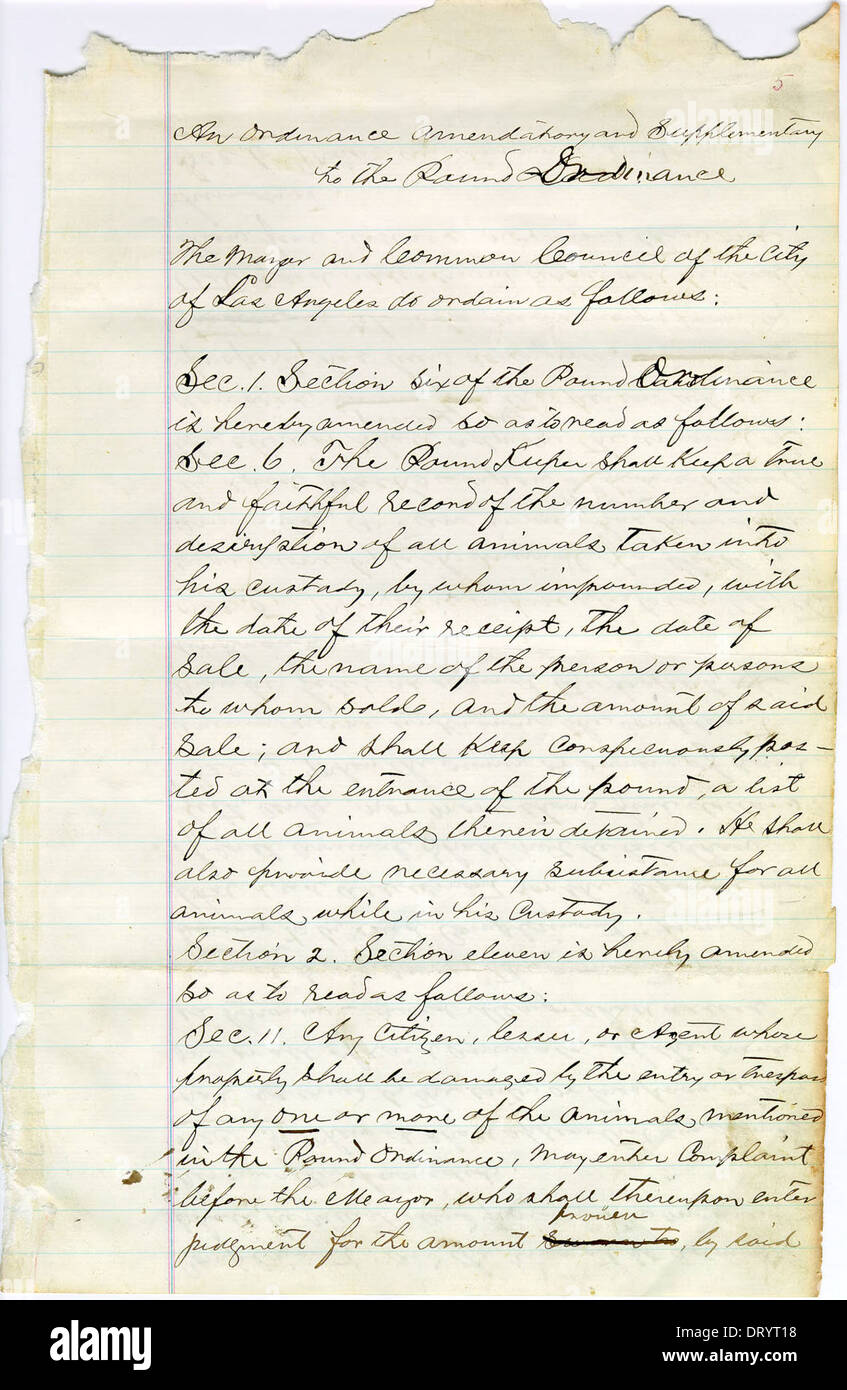 5
An Ordinance Amendatory and Supplementary
to the Pound Ordinance
The Mayor and Common Council of the City
of Los Angeles do ordain as follows:
Sec. 1. Section six of the Pound Ordinance
is hereby amended so as to read as follows:
Sec. 6. The Pound Keeper shall keep a true
and faithful record of the number and
description of all animals taken into
his custody, by whom impounded, with
the date of their receipt, the date of
sale, the name of the person or persons
to whom sold, and the amount of said
sale; and shall keep conspicuously pos-
ted at the entrance of the pound, a list
of all animals therein detained. He shall
also provide necessary subsistance for all
animals while in his custody.
Section 2. Section eleven is hereby amended
so as to read as follows:
Sec. 11. Any Citizen, lesser, or Agent whose
property shall be damaged by the entry or trespass
of any one or more of the animals mentioned
in the Pound Ordinance, may enter Complaint
before the Mayor, who shall thereupon enter
proven
judgment for the amount, by said
alamy
Image ID: DRYT18
www.alamy.com